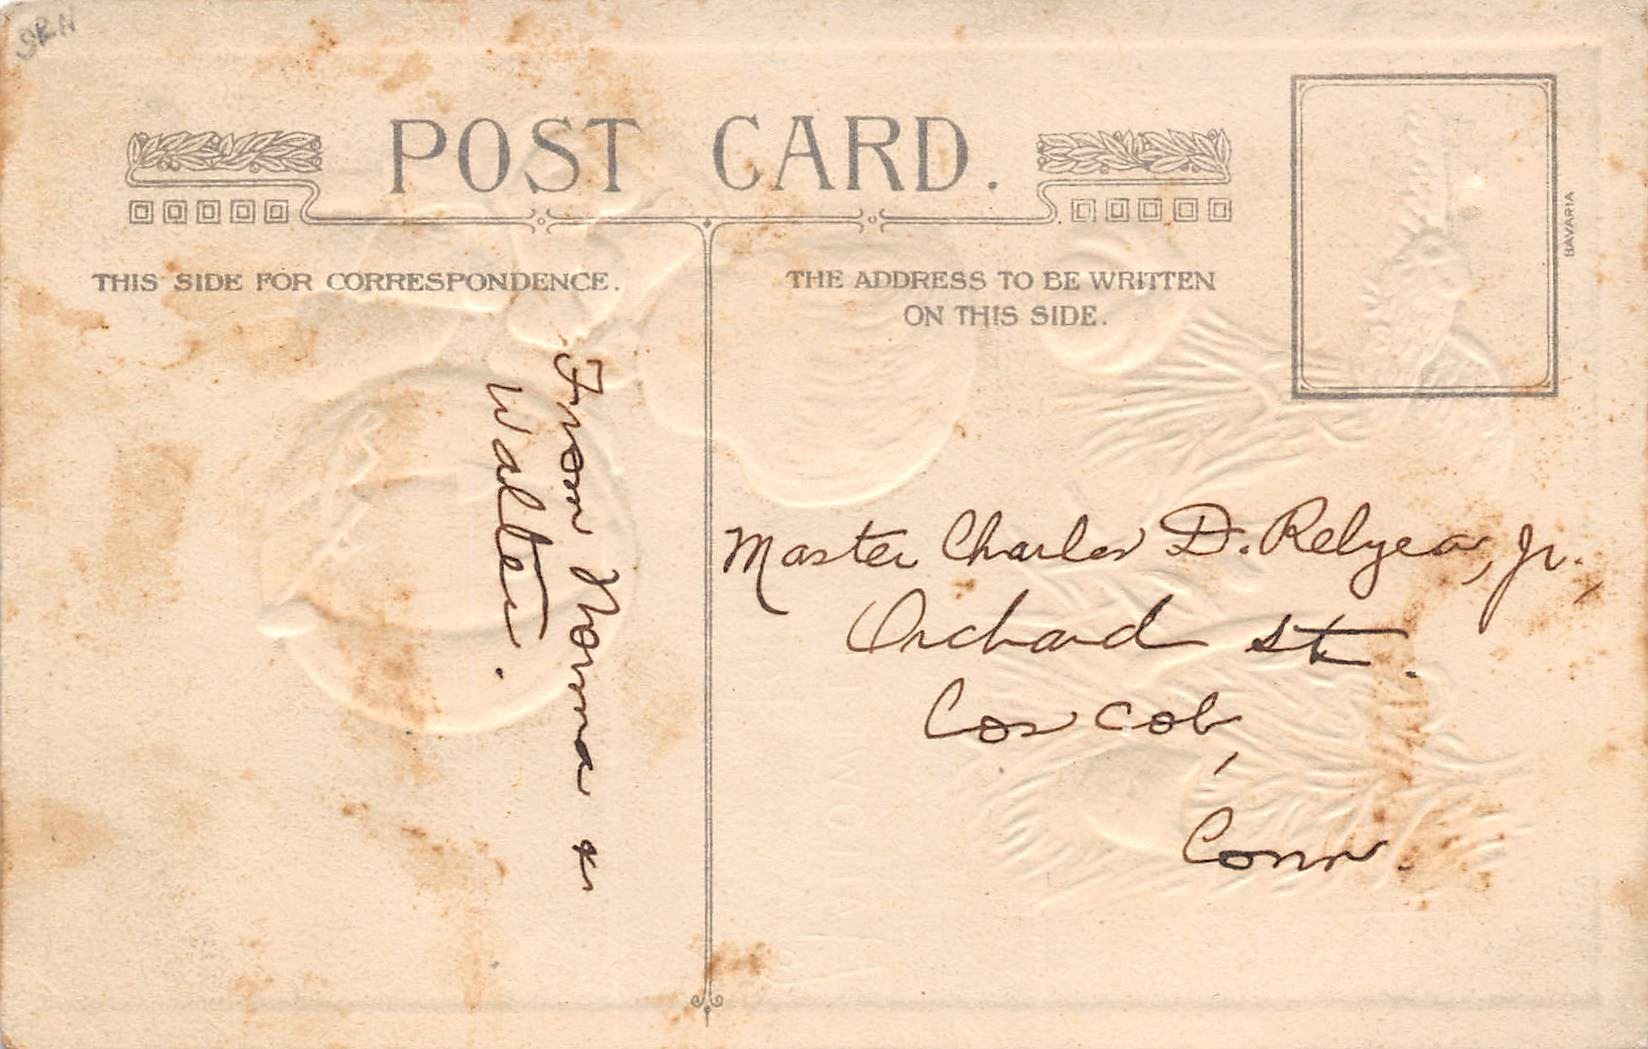 SRH
POST CARD.
THIS SIDE FOR CORRESPONDENCE.
THE ADDRESS TO BE WRITTEN
ON THIS SIDE.
BAVARIA
From Norma &
Walter.
Master Charles D. Relyea, Jr.,
Orchard St.
Cos Cob,
Conn.